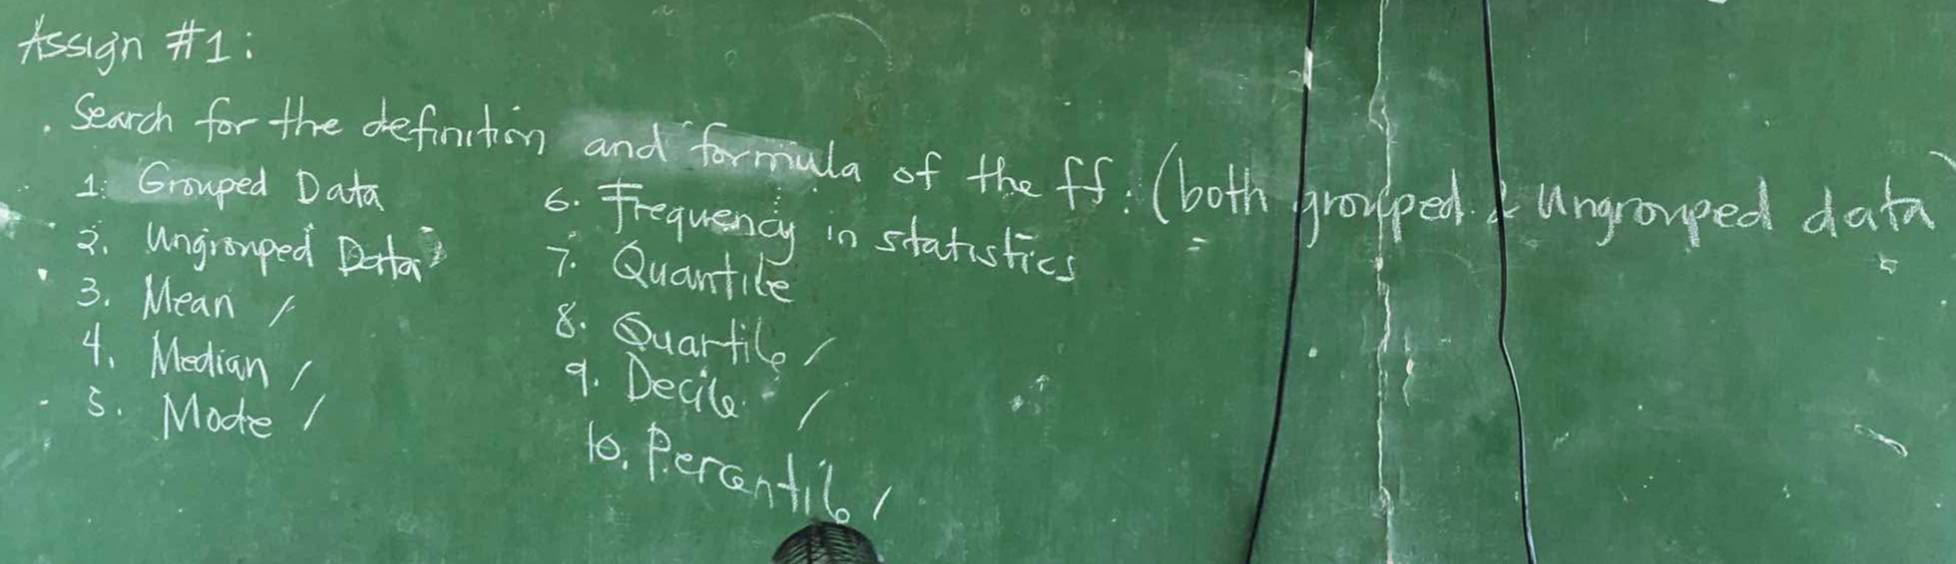 Assign #1:
Search for the definition and formula of the ff: (both grouped & Ungrouped data)
1. Grouped Data
2. Ungrouped Data
3. Mean /
4. Median /
5. Mode /
6. Frequency in statistics
7. Quantile
8. Quartile /
9. Decile /
10. Percentile /